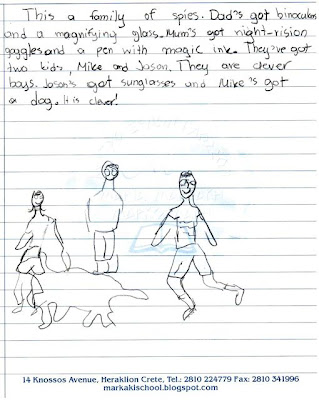 This a family of spies. Dad's got binoculars
and a magnifying glass. Mum's got night-vision
goggles and a pen with magic ink. They've got
two kids, Mike and Jason. They are clever
boys. Jason's got sunglasses and Mike's got
a dog. It is clever!
14 Knossos Avenue, Heraklion Crete, Tel.: 2810 224779 Fax: 2810 341996
markakischool.blogspot.com